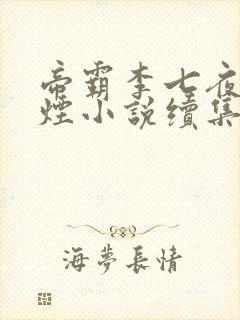 帝霸李七夜
煙小說續集
海夢長情